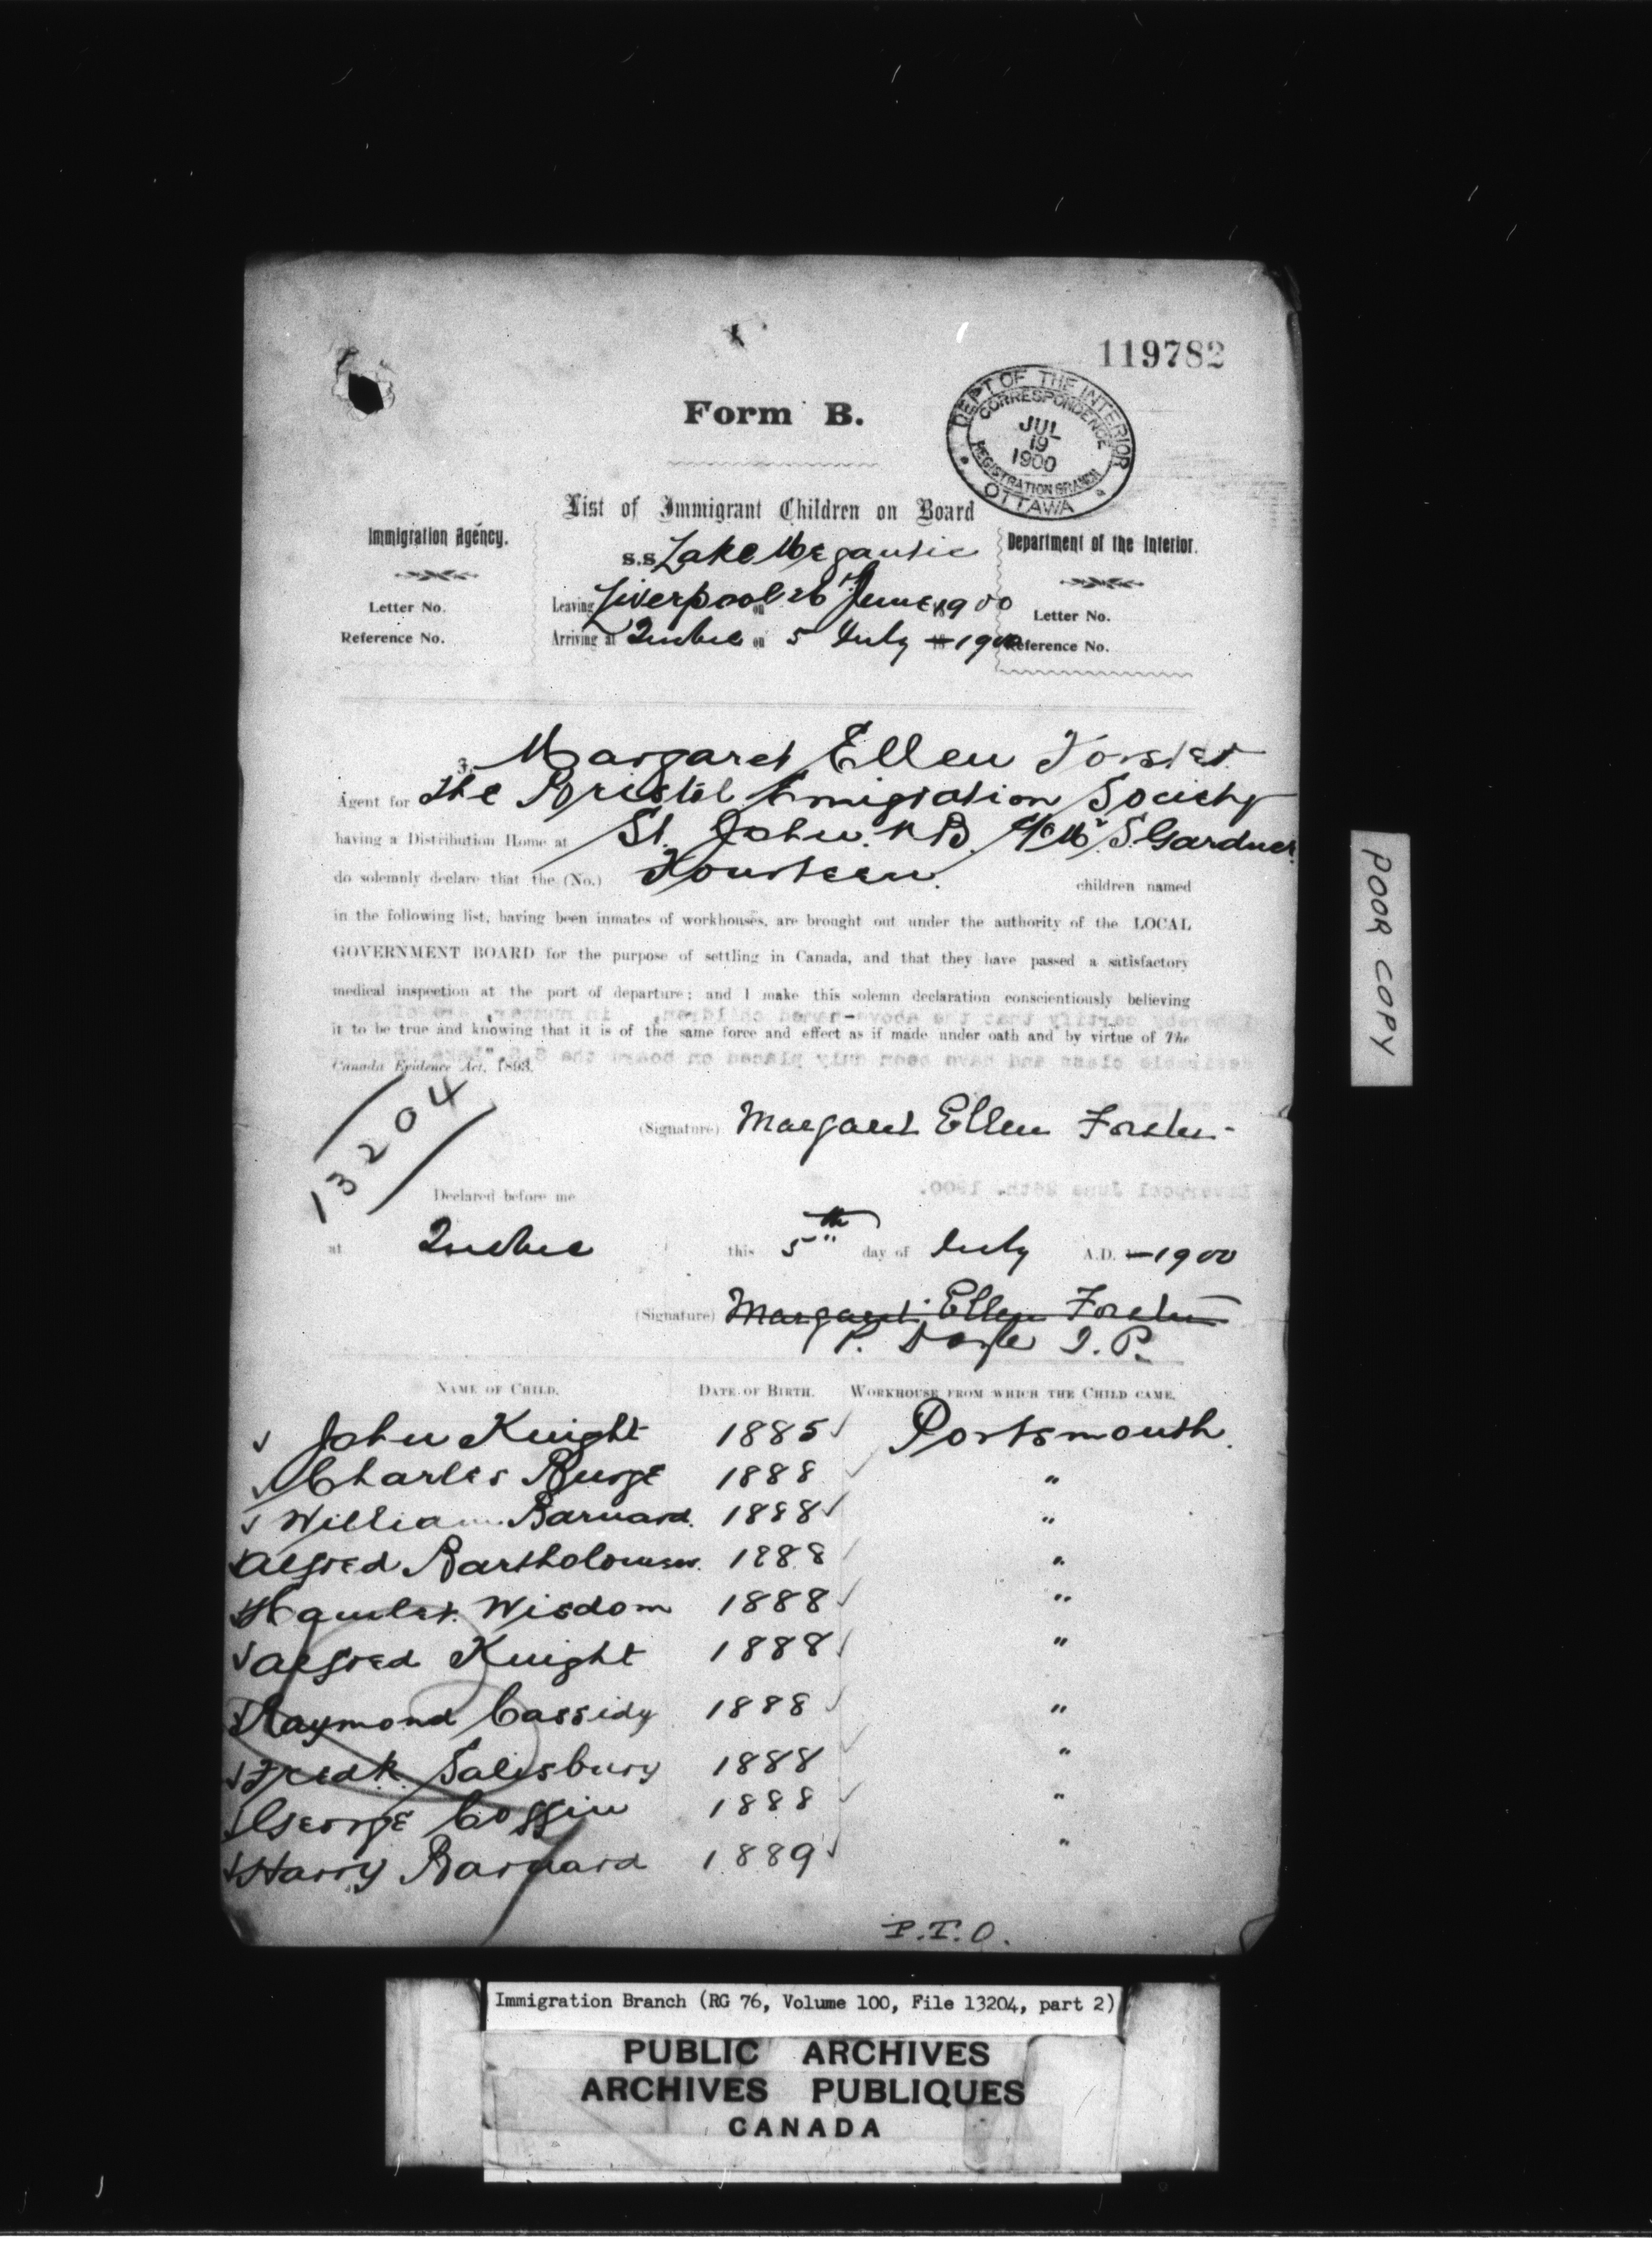 119782
Form B.
DEPT OF THE INTERIOR
CORRESPONDENCE
JUL
19
1900
REGISTRATION BRANCH
OTTAWA
List of Immigrant Children on Board
Immigration Agency.
s.s Lake Megantic
Department of the Interior.
Leaving Liverpool on 26th June 1900
Letter No.
Letter No.
Arriving at Quebec on 5 July 18 1900
Reference No.
Reference No.
I, Margaret Ellen Forster
Agent for The Bristol Emigration Society
having a Distribution Home at St. John. N B. S. Gardner.
do solemnly declare that the (No.) Fourteen. children named
in the following list, having been inmates of workhouses, are brought out under the authority of the LOCAL
GOVERNMENT BOARD for the purpose of settling in Canada, and that they have passed a satisfactory
medical inspection at the port of departure; and I make this solemn declaration conscientiously believing
it to be true and knowing that it is of the same force and effect as if made under oath and by virtue of The
Canada Evidence Act, 1893.
13204
(Signature) Margaret Ellen Forster
Declared before me
at Quebec this 5th day of July A.D. 1900
(Signature) Margaret Ellen Forster
P. Doyle J.P.
NAME OF CHILD. DATE OF BIRTH. WORKHOUSE FROM WHICH THE CHILD CAME.
John Knight 1885 Portsmouth
Charles Burge 1888 "
William Barnard. 1888 "
Alfred Bartholomew. 1888 "
Hamlet Wisdom 1888 "
Alfred Knight 1888 "
Raymond Cassidy 1888 "
Fredk. Salisbury 1888 "
George Coffin 1888 "
Harry Barnard 1889 "
P.T.O.
POOR COPY
Immigration Branch (RG 76, Volume 100, File 13204, part 2)
PUBLIC ARCHIVES
ARCHIVES PUBLIQUES
CANADA